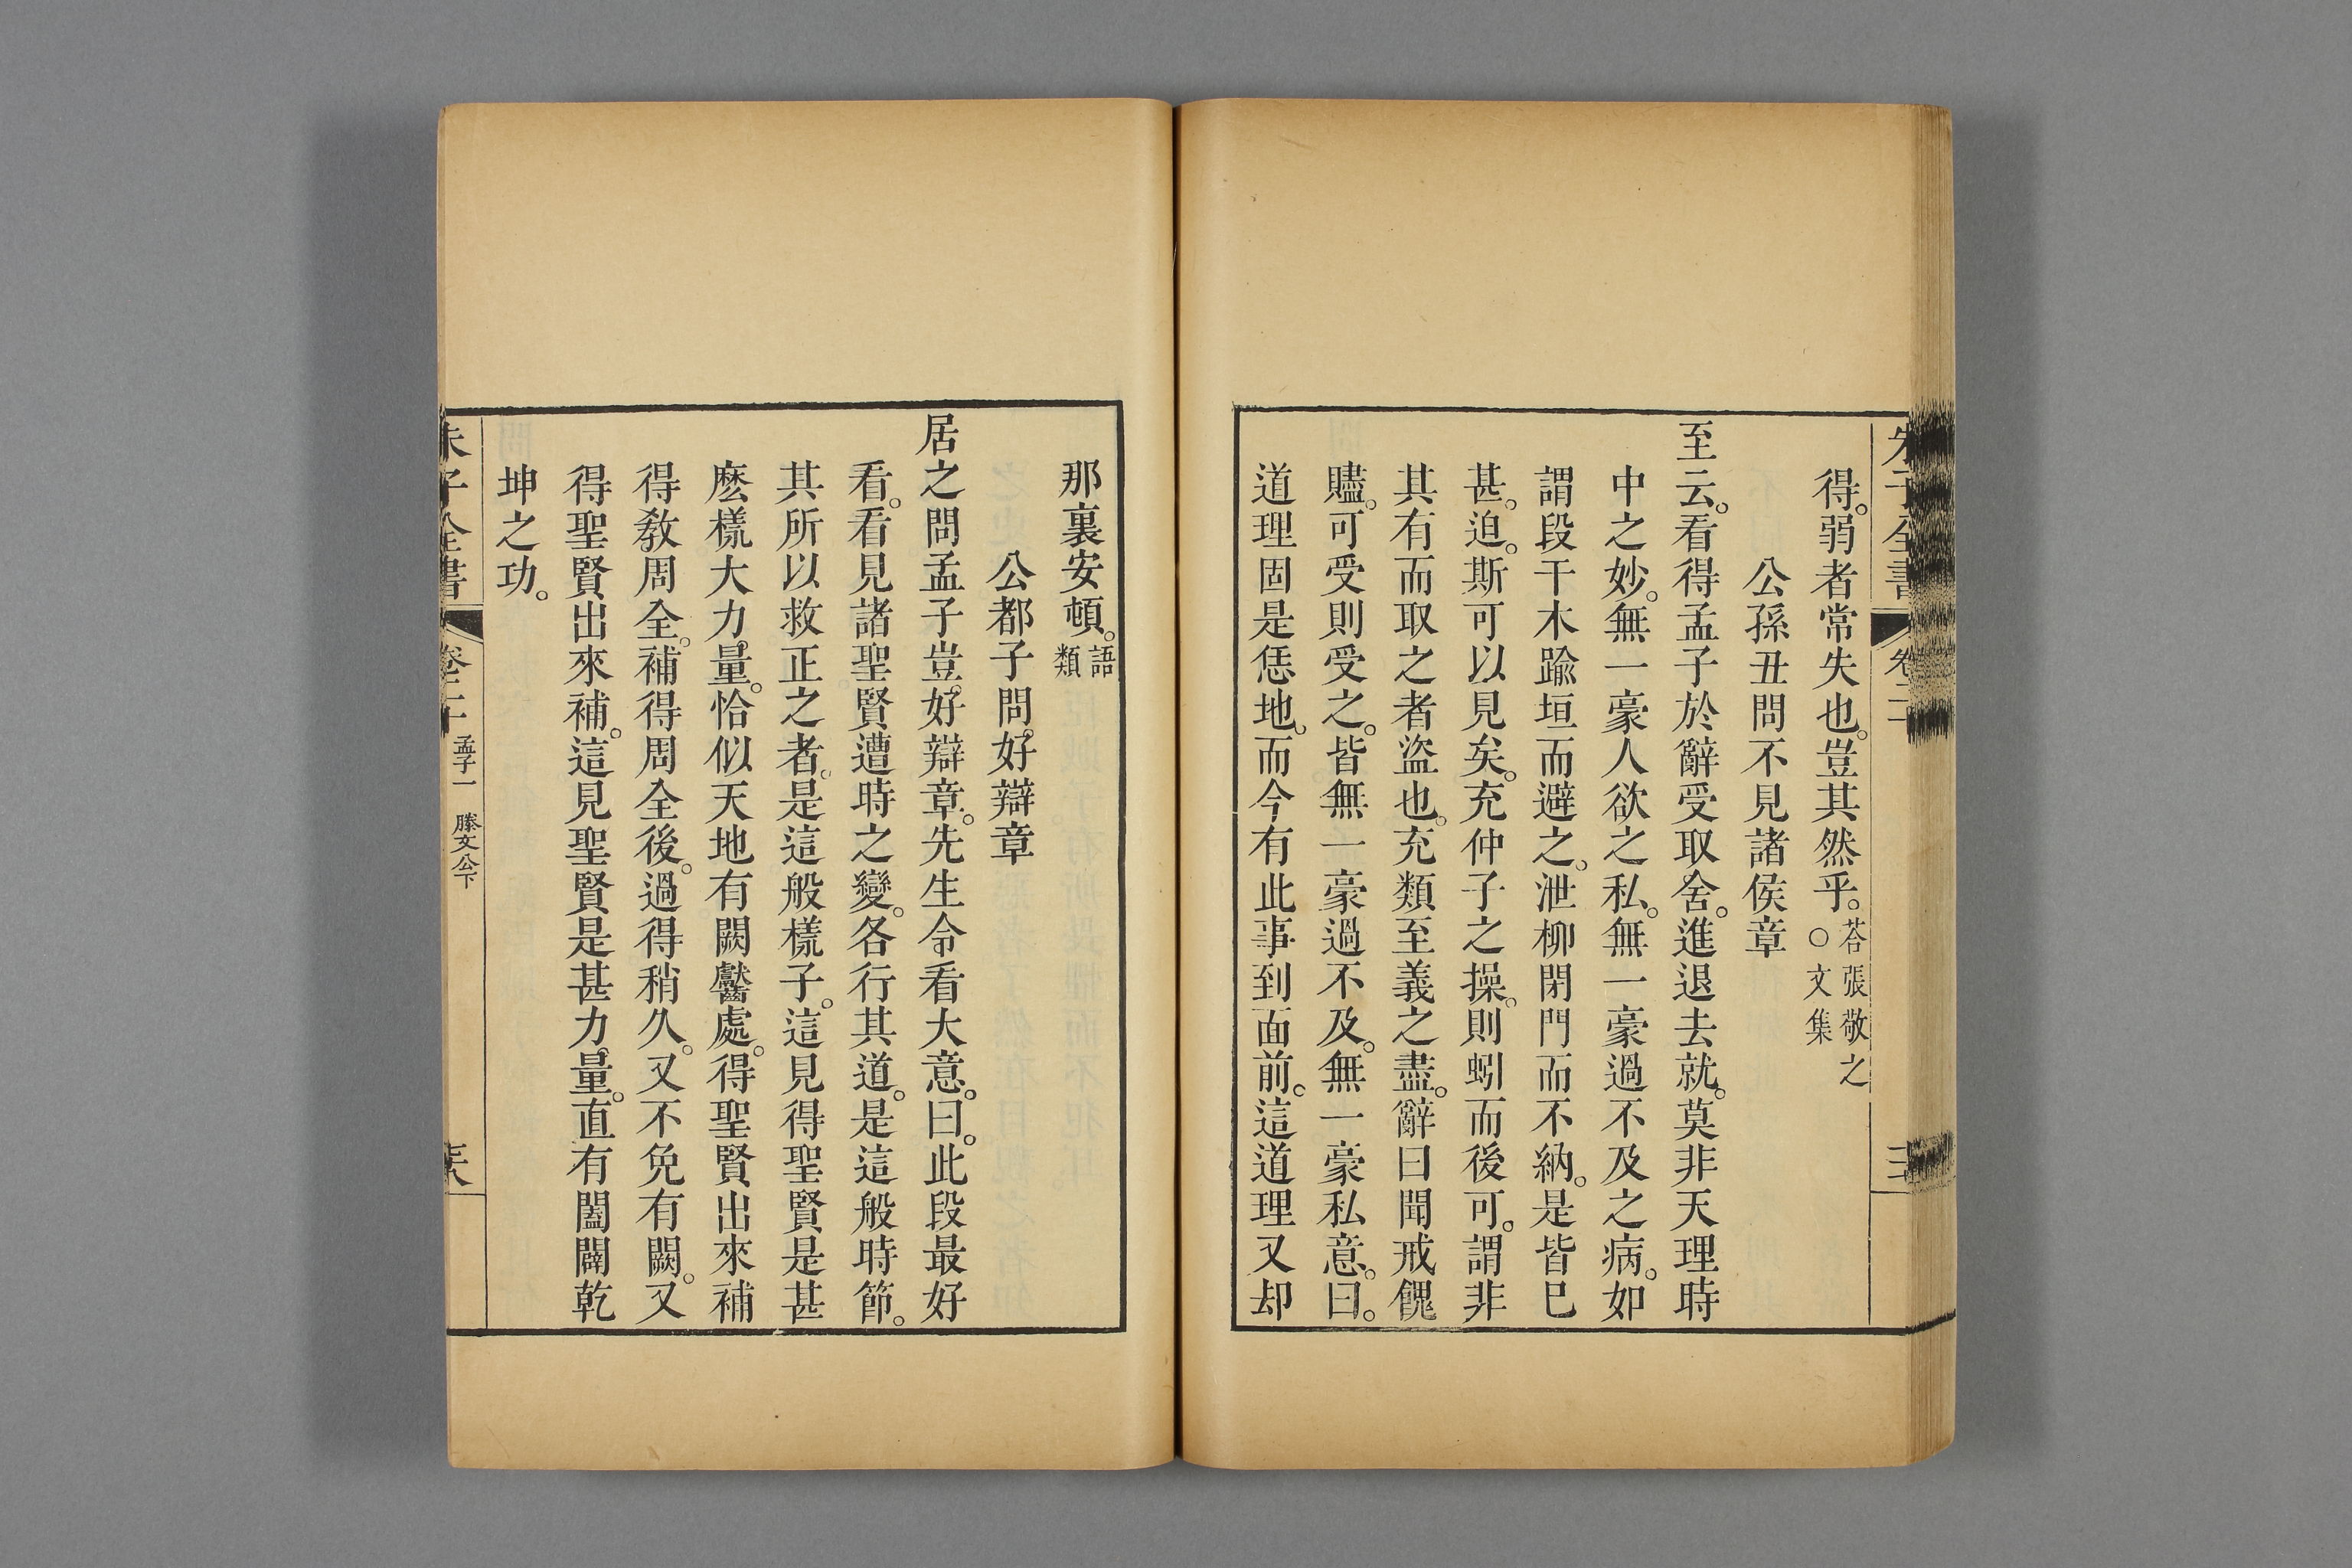 朱子全書 卷二十
得。弱者常失也。豈其然乎。答張敬之
○文集
公孫丑問不見諸侯章
至云。看得孟子於辭受取舍。進退去就。莫非天理時
中之妙。無一豪人欲之私。無一豪過不及之病。如
謂段干木踰垣而避之。泄柳閉門而不納。是皆已
甚。迫。斯可以見矣。充仲子之操。則蚓而後可。謂非
其有而取之者盜也。充類至義之盡。辭曰聞戒餽
贐。可受則受之。皆無一豪過不及。無一豪私意。曰。
道理固是恁地。而今有此事到面前。這道理又却
那裏安頓。語
類
公都子問。好辯章
居之問孟子豈。好辯章。先生令看大意。曰。此段最好
看。看見諸聖賢遭時之變。各行其道。是這般時節。
其所以救正之者。是這般樣子。這見得聖賢是甚
麽樣大力。量。恰似天地有闕齾處。得聖賢出來補
得敎周全。補得周全後。過得稍久。又不免有闕。又
得聖賢出來補。這見聖賢是甚力。量。直有闔闢乾
坤之功。
朱子全書 卷二十 孟子一 滕文公下